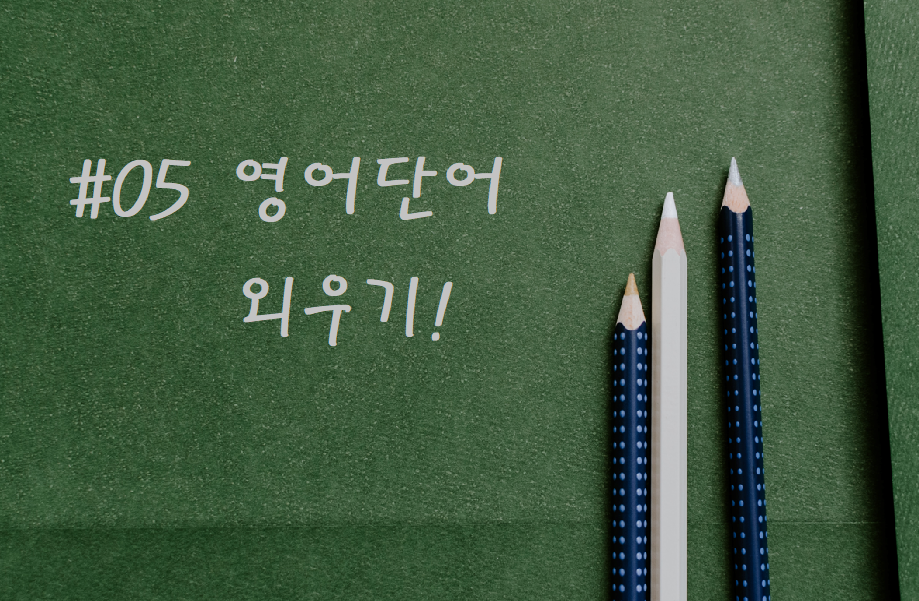 #05 영어단어
외우기!